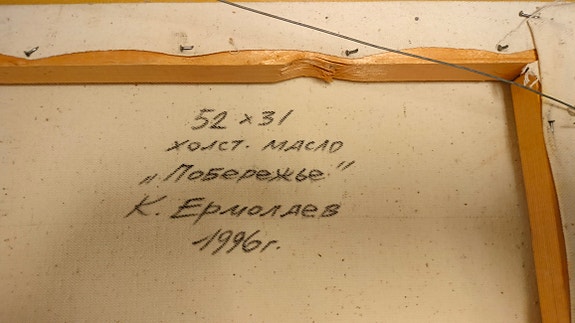 52 x 31
холст. масло
„Побережье"
К. Ермолаев
1996г.